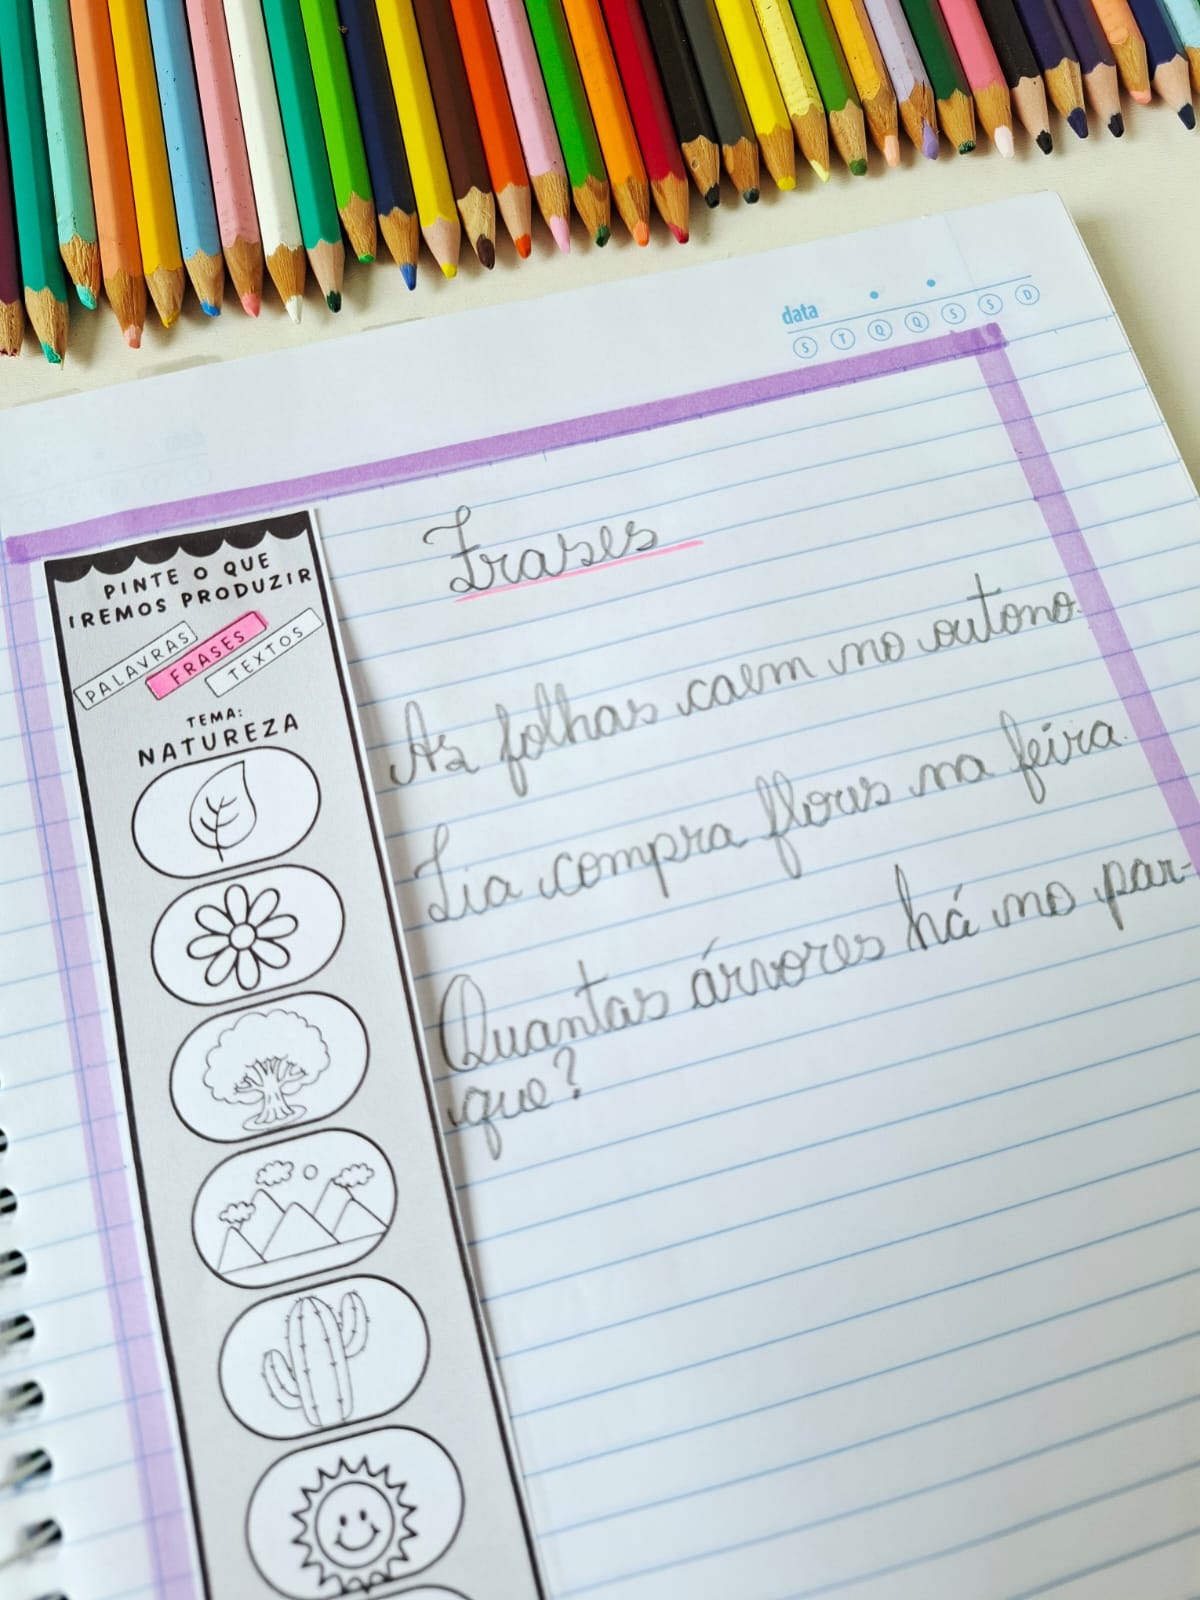 data
S T Q Q S S D
PINTE O QUE
IREMOS PRODUZIR
PALAVRAS
FRASES
TEXTOS
TEMA:
NATUREZA
Frases
As folhas caem no outono.
Lia compra flores na feira.
Quantas árvores há no par-
que?